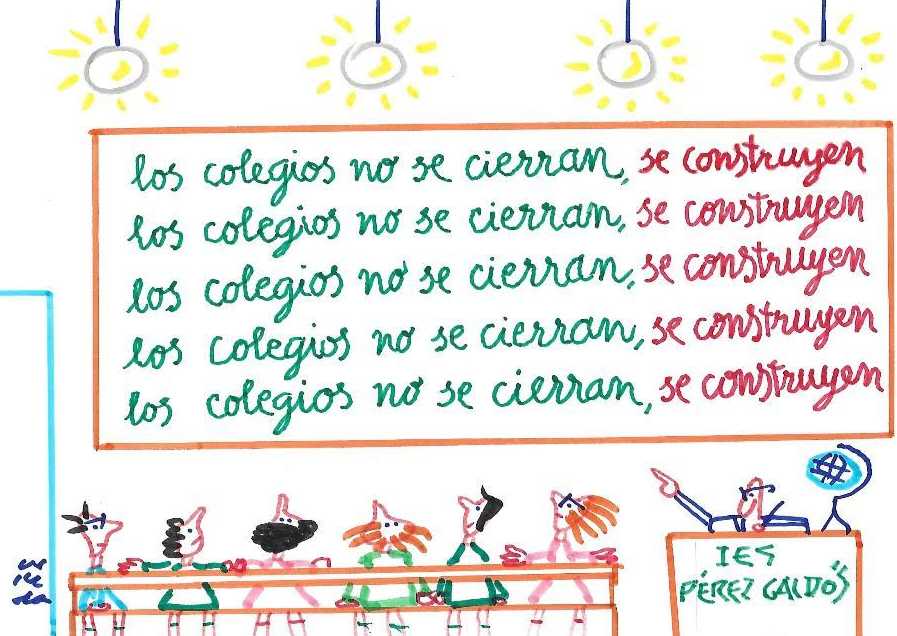 los colegios no se cierran, se construyen
los colegios no se cierran, se construyen
los colegios no se cierran, se construyen
los colegios no se cierran, se construyen
los colegios no se cierran, se construyen
IES
PÉREZ GALDÓS